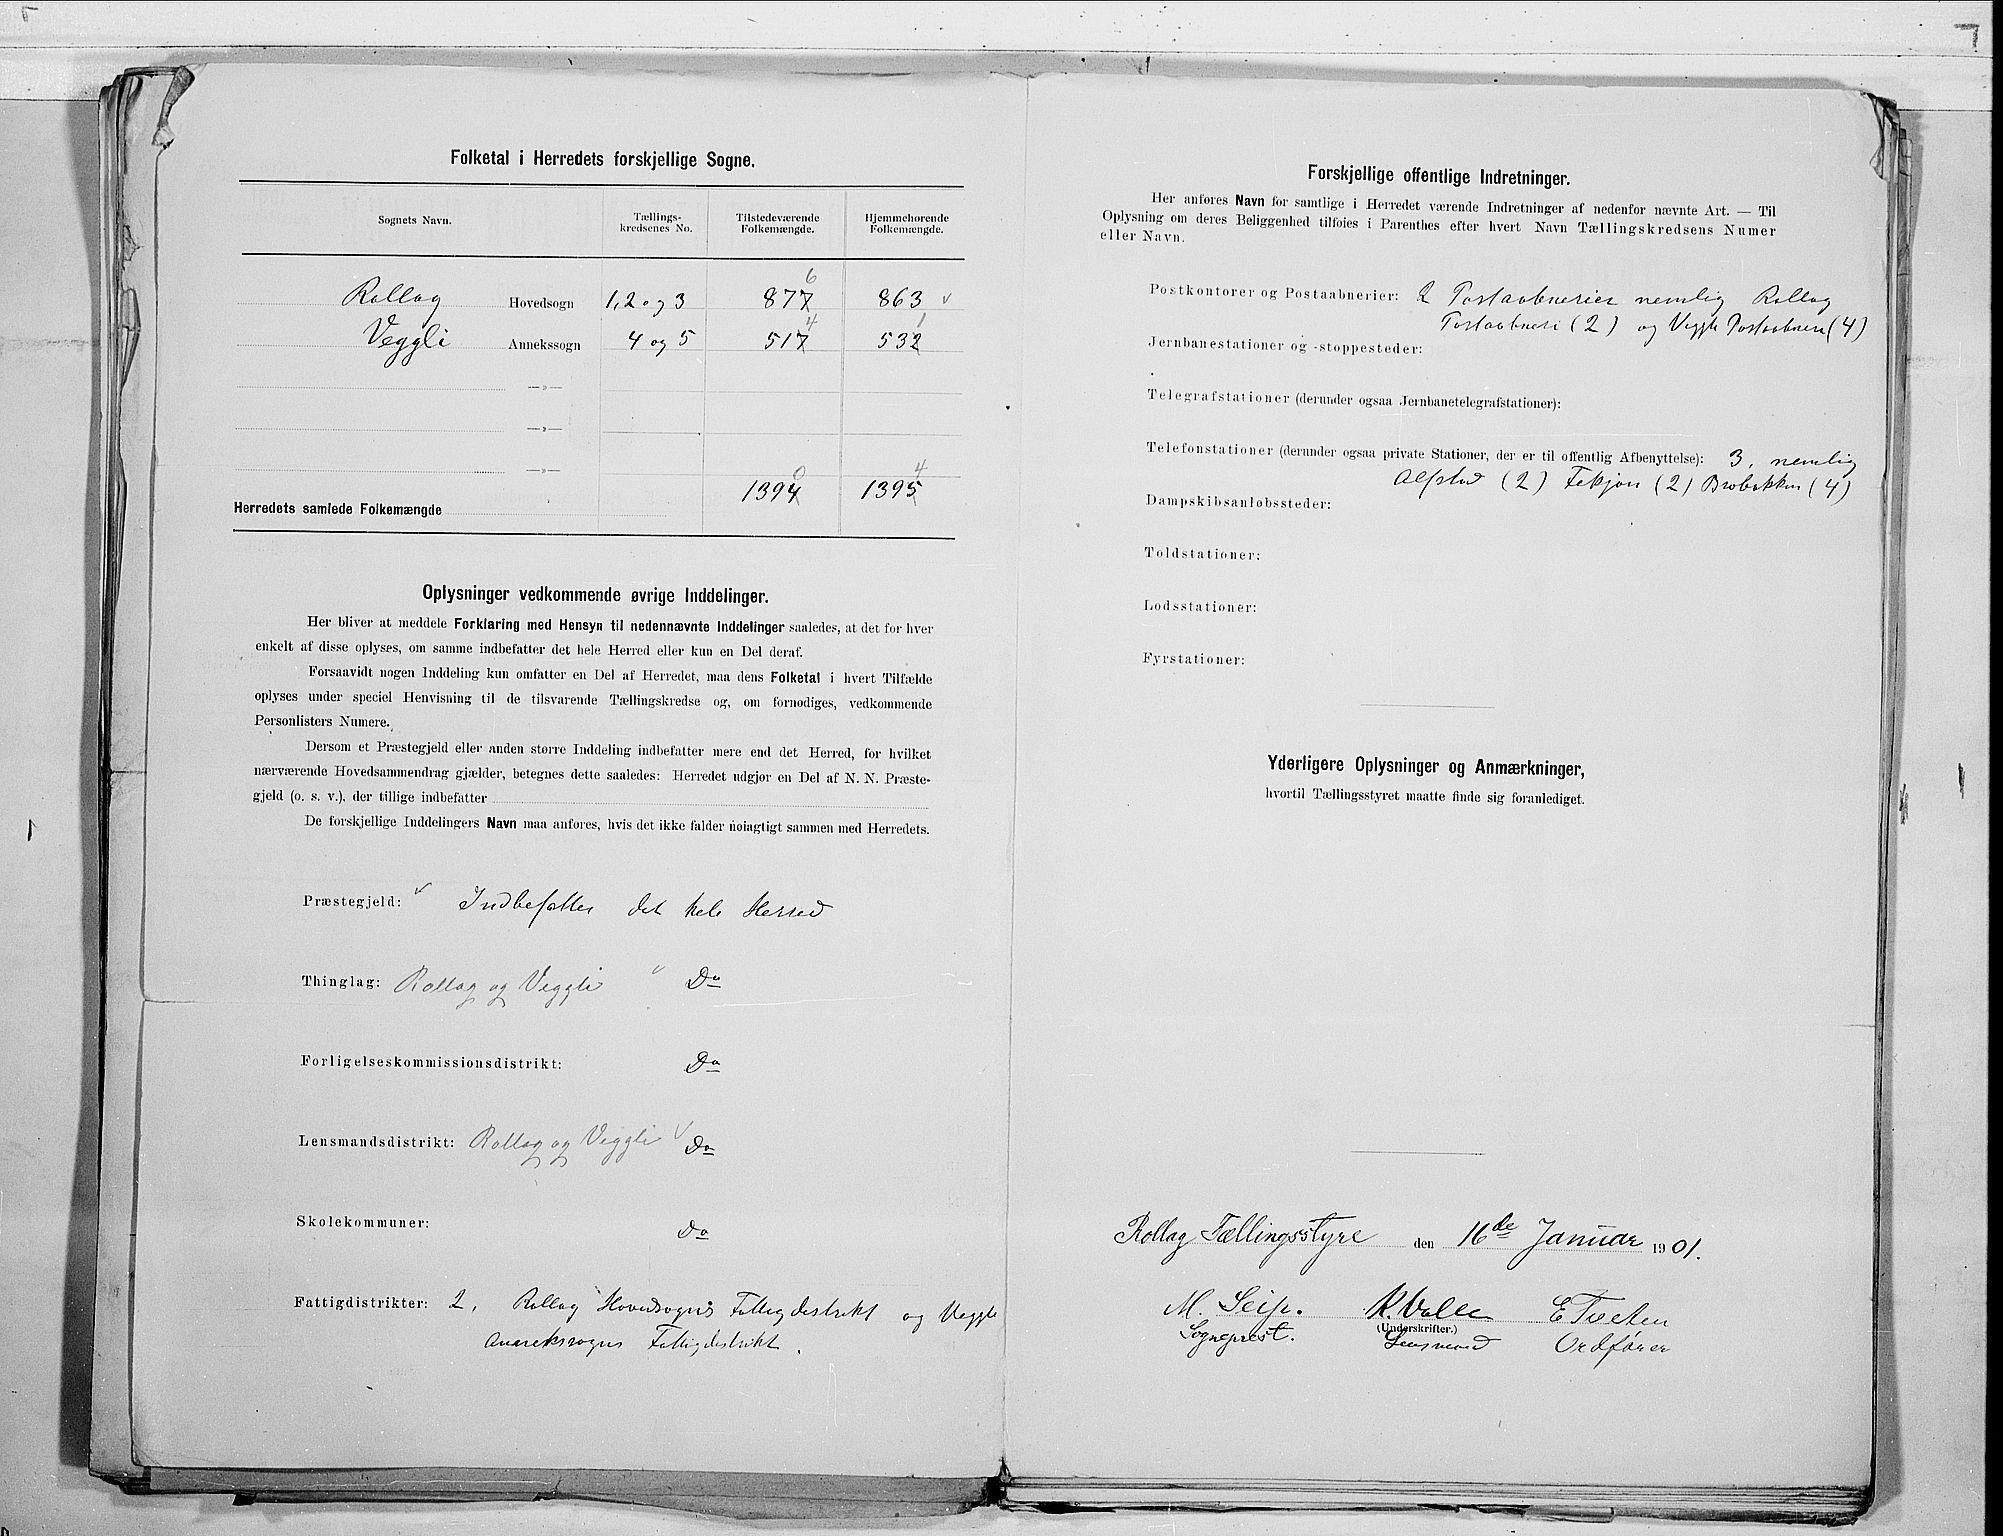 Folketal i Herredets forskjellige Sogne.
Sognets Navn. Tællings-kredsenes No. Tilstedeværende Folkemængde. Hjemmehørende Folkemængde.
6
Rollag Hovedsogn 1, 2 og 3 877 863
4 1
Veggli Annekssogn 4 og 5 517 532
—»—
—»—
—»—
0 4
Herredets samlede Folkemængde 1394 1395
Oplysninger vedkommende øvrige Inddelinger.
Her bliver at meddele Forklaring med Hensyn til nedennævnte Inddelinger saaledes, at det for hver
enkelt af disse oplyses, om samme indbefatter det hele Herred eller kun en Del deraf.
Forsaavidt nogen Inddeling kun omfatter en Del af Herredet, maa dens Folketal i hvert Tilfælde
oplyses under speciel Henvisning til de tilsvarende Tællingskredse og, om fornødiges, vedkommende
Personlisters Numere.
Dersom et Præstegjeld eller anden større Inddeling indbefatter mere end det Herred, for hvilket
nærværende Hovedsammendrag gjælder, betegnes dette saaledes: Herredet udgjør en Del af N. N. Præste-
gjeld (o. s. v.), der tillige indbefatter
De forskjellige Inddelingers Navn maa anføres, hvis det ikke falder nøiagtigt sammen med Herredets.
Præstegjeld: Indbefatter det hele Herred
Thinglag: Rollag og Veggli Do
Forligelseskommissionsdistrikt: Do
Lensmandsdistrikt: Rollag og Veggli Do
Skolekommuner: Do
Fattigdistrikter: 2, Rollag Hovedsogns Fattigdistrikt og Veggli
Annekssogns Fattigdistrikt.
Forskjellige offentlige Indretninger.
Her anføres Navn for samtlige i Herredet værende Indretninger af nedenfor nævnte Art. — Til
Oplysning om deres Beliggenhed tilføies i Parenthes efter hvert Navn Tællingskredsens Numer
eller Navn.
Postkontorer og Postaabnerier: 2 Postaabnerier nemlig Rollag
Postaabneri (2) og Veggli Postaabneri (4)
Jernbanestationer og -stoppesteder:
Telegrafstationer (derunder ogsaa Jernbanetelegrafstationer):
Telefonstationer (derunder ogsaa private Stationer, der er til offentlig Afbenyttelse): 3, nemlig
Alfstad (2) Fekjan (2) Brobakken (4)
Dampskibsanløbssteder:
Toldstationer:
Lodsstationer:
Fyrstationer:
Yderligere Oplysninger og Anmærkninger,
hvortil Tællingsstyret maatte finde sig foranlediget.
Rollag Tællingsstyre den 16de Januar 1901.
M. Seip. K. Valle E Tveten
(Underskrifter.)
Sogneprest. Lensmand Ordfører